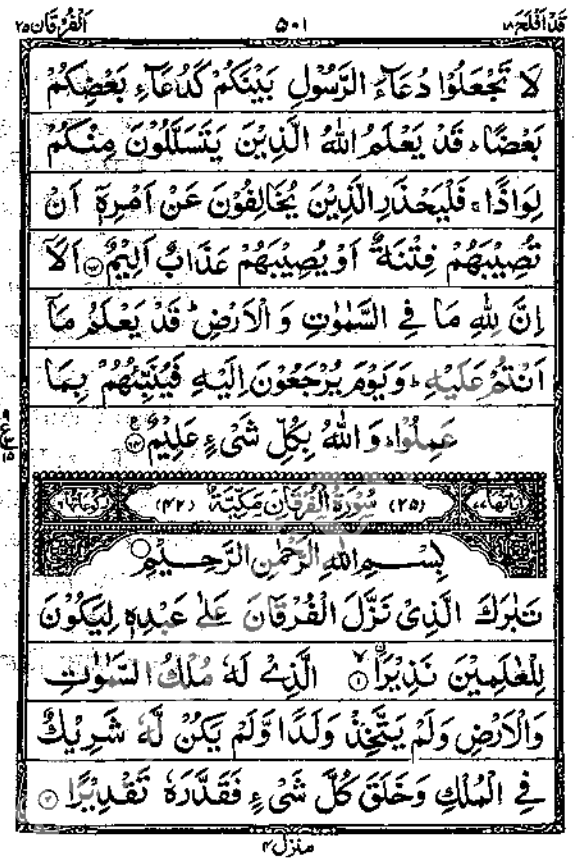 قَدْ اَفْلَحَ ١٨
٥٠١
اَلْفُرْقَان ٢٥
لَا تَجْعَلُوْا دُعَآءَ الرَّسُوْلِ بَيْنَكُمْ كَدُعَآءِ بَعْضِكُمْ
بَعْضًا ؕ قَدْ يَعْلَمُ اللّٰهُ الَّذِيْنَ يَتَسَلَّلُوْنَ مِنْكُمْ
لِوَاذًا ۚ فَلْيَحْذَرِ الَّذِيْنَ يُخَالِفُوْنَ عَنْ اَمْرِهٖۤ اَنْ
تُصِيْبَهُمْ فِتْنَةٌ اَوْ يُصِيْبَهُمْ عَذَابٌ اَلِيْمٌ ﴿٦٣﴾ اَلَاۤ
اِنَّ لِلّٰهِ مَا فِي السَّمٰوٰتِ وَ الْاَرْضِ ؕ قَدْ يَعْلَمُ مَاۤ
اَنْتُمْ عَلَيْهِ ؕ وَ يَوْمَ يُرْجَعُوْنَ اِلَيْهِ فَيُنَبِّئُهُمْ بِمَا
عَمِلُوْا ؕ وَ اللّٰهُ بِكُلِّ شَيْءٍ عَلِيْمٌ ﴿٦٤﴾
اٰيَاتُهَا ٧٧ (٢٥) سُوْرَةُ الْفُرْقَانِ مَكِّيَّةٌ (٤٢) رُكُوْعَاتُهَا ٦
بِسْمِ اللّٰهِ الرَّحْمٰنِ الرَّحِيْمِ
تَبٰرَكَ الَّذِيْ نَزَّلَ الْفُرْقَانَ عَلٰى عَبْدِهٖ لِيَكُوْنَ
لِلْعٰلَمِيْنَ نَذِيْرًا ﴿١﴾ الَّذِيْ لَهٗ مُلْكُ السَّمٰوٰتِ
وَالْاَرْضِ وَلَمْ يَتَّخِذْ وَلَدًا وَّلَمْ يَكُنْ لَّهٗ شَرِيْكٌ
فِي الْمُلْكِ وَخَلَقَ كُلَّ شَيْءٍ فَقَدَّرَهٗ تَقْدِيْرًا ﴿٢﴾
منزل ٤